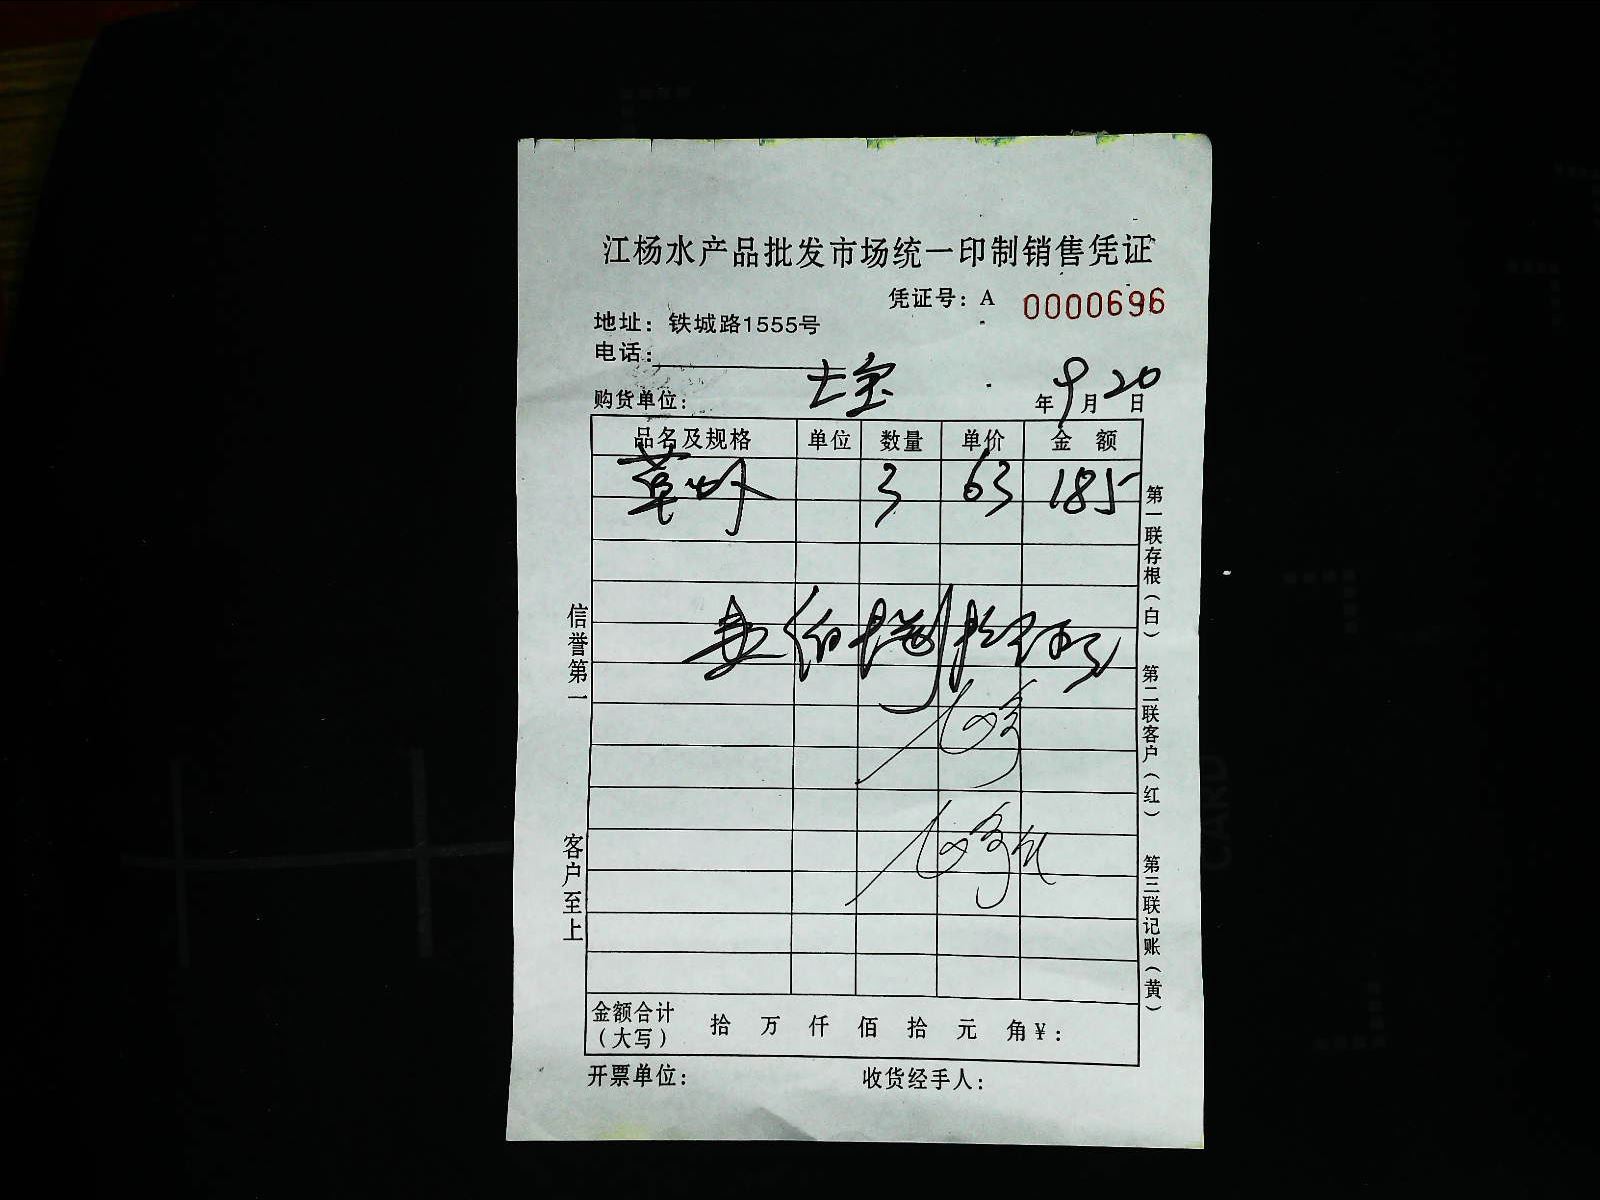 江杨水产品批发市场统一印制销售凭证
凭证号：A 0000696
地址：铁城路1555号
电话：
购货单位： 士宝 年 9 月 20 日
品名及规格 单位 数量 单价 金额
草虾 3 63 185
壹佰捌拾伍元
金额合计（大写） 拾 万 仟 佰 拾 元 角 ¥：
开票单位： 收货经手人：
信誉第一
客户至上
第一联存根（白） 第二联客户（红） 第三联记账（黄）